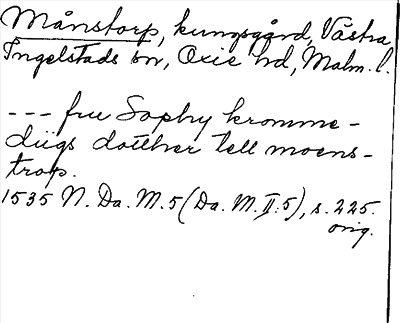 Månstorp, kungsgård, Västra
Ingelstads sn, Oxie hd, Malm. l.
--- fru Sophy kromme-
diigs dotther tell moens-
trop.
1535 N. Da. M. 5 (Da. M. II:5), s. 225.
orig.